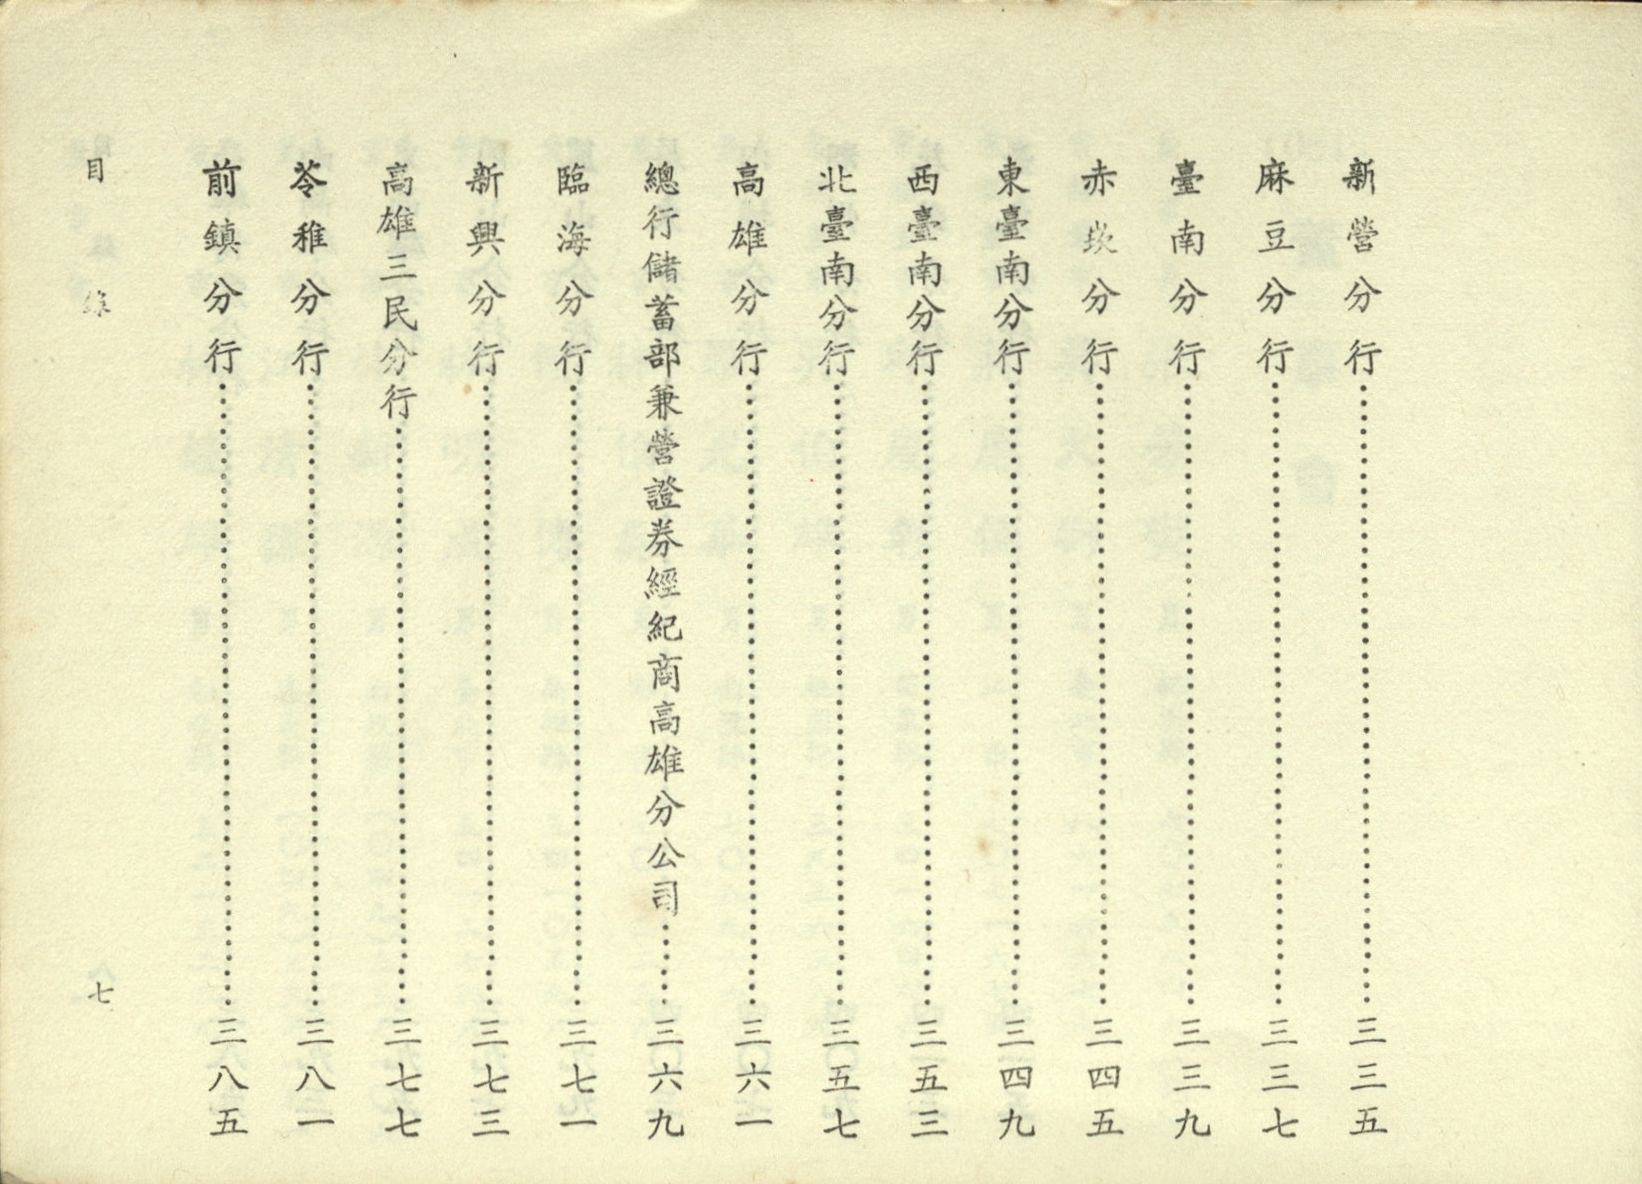 新營分行………三三五
麻豆分行………三三七
臺南分行………三三九
赤崁分行………三四五
東臺南分行………三四九
西臺南分行………三五三
北臺南分行………三五七
高雄分行………三六一
總行儲蓄部兼營證券經紀商高雄分公司………三六九
臨海分行………三七一
新興分行………三七三
高雄三民分行………三七七
苓稚分行………三八一
前鎮分行………三八五
目錄 七